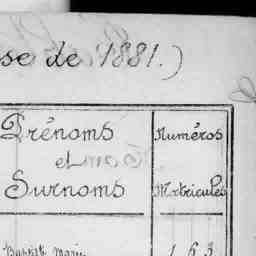 se de 1881.)
Prénoms Numéros
et
Surnoms Matricules
Baptiste Marie 163